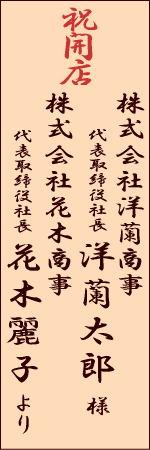 祝開店
株式会社洋蘭商事
代表取締役社長 洋蘭太郎 様
株式会社花木商事
代表取締役社長 花木麗子 より